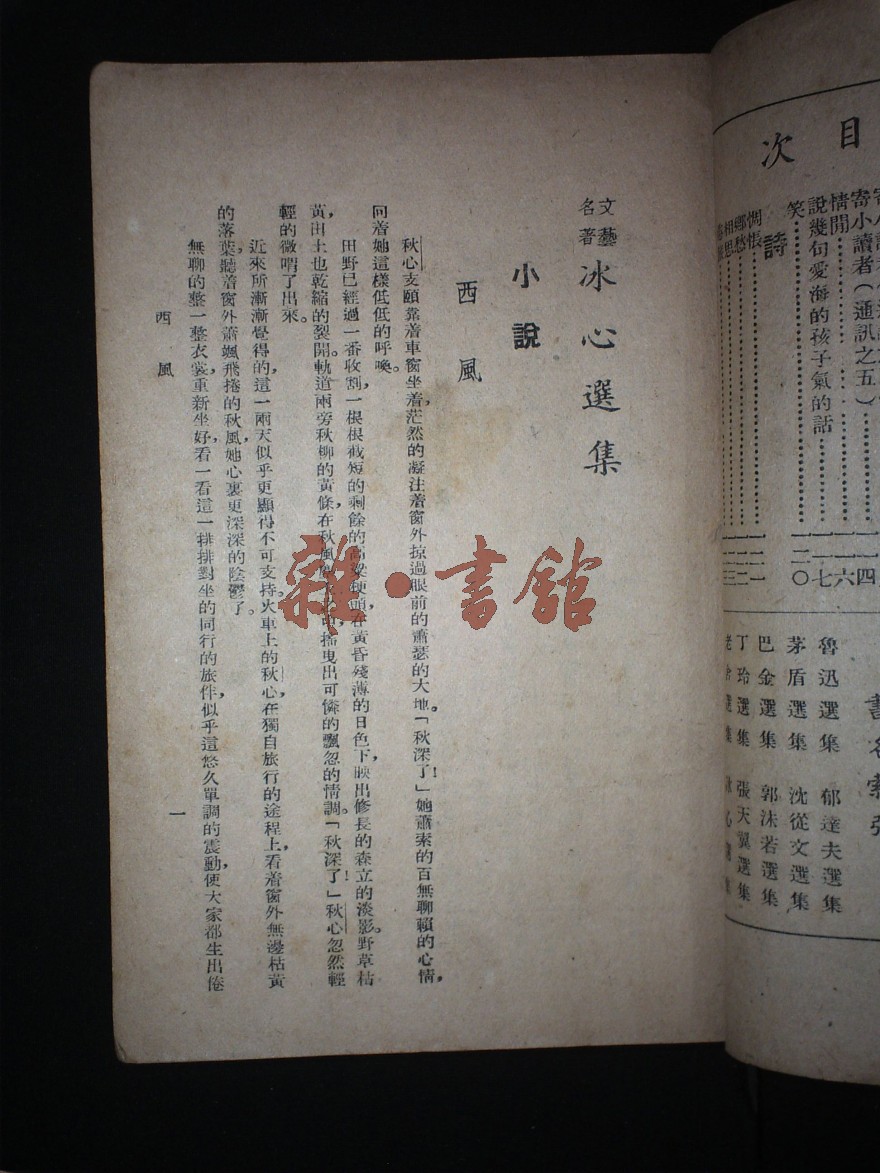 目次
寄小讀者(通訊之五)……四
情閒……一六
說幾句愛海的孩子氣的話……一七
笑……二〇
詩
惆悵……二一
鄉愁……二二
相思……二三
書名索引
魯迅選集 郁達夫選集
茅盾選集 沈從文選集
巴金選集 郭沫若選集
丁玲選集 張天翼選集
文藝名著 冰心選集
小說
西風
秋心支頤靠着車窗坐着,茫然的凝注着窗外掠過眼前的蕭瑟的大地。「秋深了!」她蕭索的百無聊賴的心情,
同着她這樣低低的呼喚。
田野已經過一番收割,一根根截短的剩餘的高粱梗頭,在黃昏殘薄的日色下,映出修長的森立的淡影。野草枯
黃,田土也乾縮的裂開。軌道兩旁秋柳的黃條,在秋風中搖曳出可憐的飄忽的情調。「秋深了!」秋心忽然輕
輕的微喟了出來。
近來所漸漸覺得的,這一兩天似乎更顯得不可支持,火車上的秋心,在獨自旅行的途程上,看着窗外無邊枯黃
的落葉,聽着窗外蕭颯飛捲的秋風,她心裏更深深的陰鬱了。
無聊的整一整衣裳,重新坐好,看一看這一排排對坐的同行的旅伴,似乎這悠久單調的震動,便大家都生出倦
西風
一
雜·書館